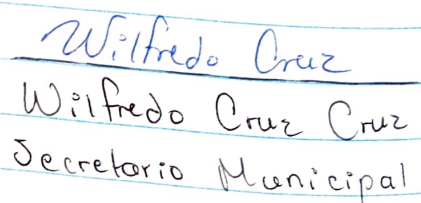 Wilfredo Cruz
Wilfredo Cruz Cruz
Secretario Municipal